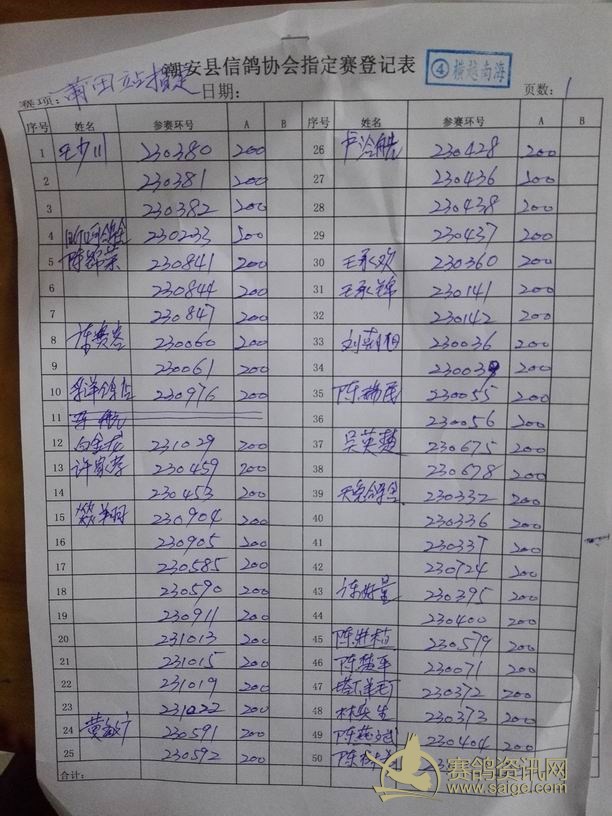 潮安县信鸽协会指定赛登记表 ④横越南海
赛项: 莆田站指定 日期: 页数: 1
序号 姓名 参赛环号 A B 序号 姓名 参赛环号 A B
1 王少川 230380 200 26 230428 200
2 230381 200 27 230436 200
3 230382 200 28 230438 200
4 230233 200 29 230437 200
5 230841 200 30 王永欢 230360 200
6 230844 200 31 230141 200
7 230847 200 32 230142 200
8 230060 200 33 230036 200
9 230061 200 34 200
10 230976 200 35 陈瑞民 230055 200
11 36 230056 200
12 231029 200 37 吴英楚 230675 200
13 许家孝 230459 200 38 230678 200
14 230453 200 39 230332 200
15 230904 200 40 230336 200
16 230905 200 41 230337 200
17 230585 200 42 230724 200
18 230590 200 43 230395 200
19 230911 200 44 230400 200
20 231013 200 45 230579 200
21 231015 200 46 230071 200
22 231019 200 47 230372 200
23 231022 200 48 230373 200
24 230591 200 49 230404 200
25 230592 200 50
合计:
赛鸽资讯网
www.saige.com